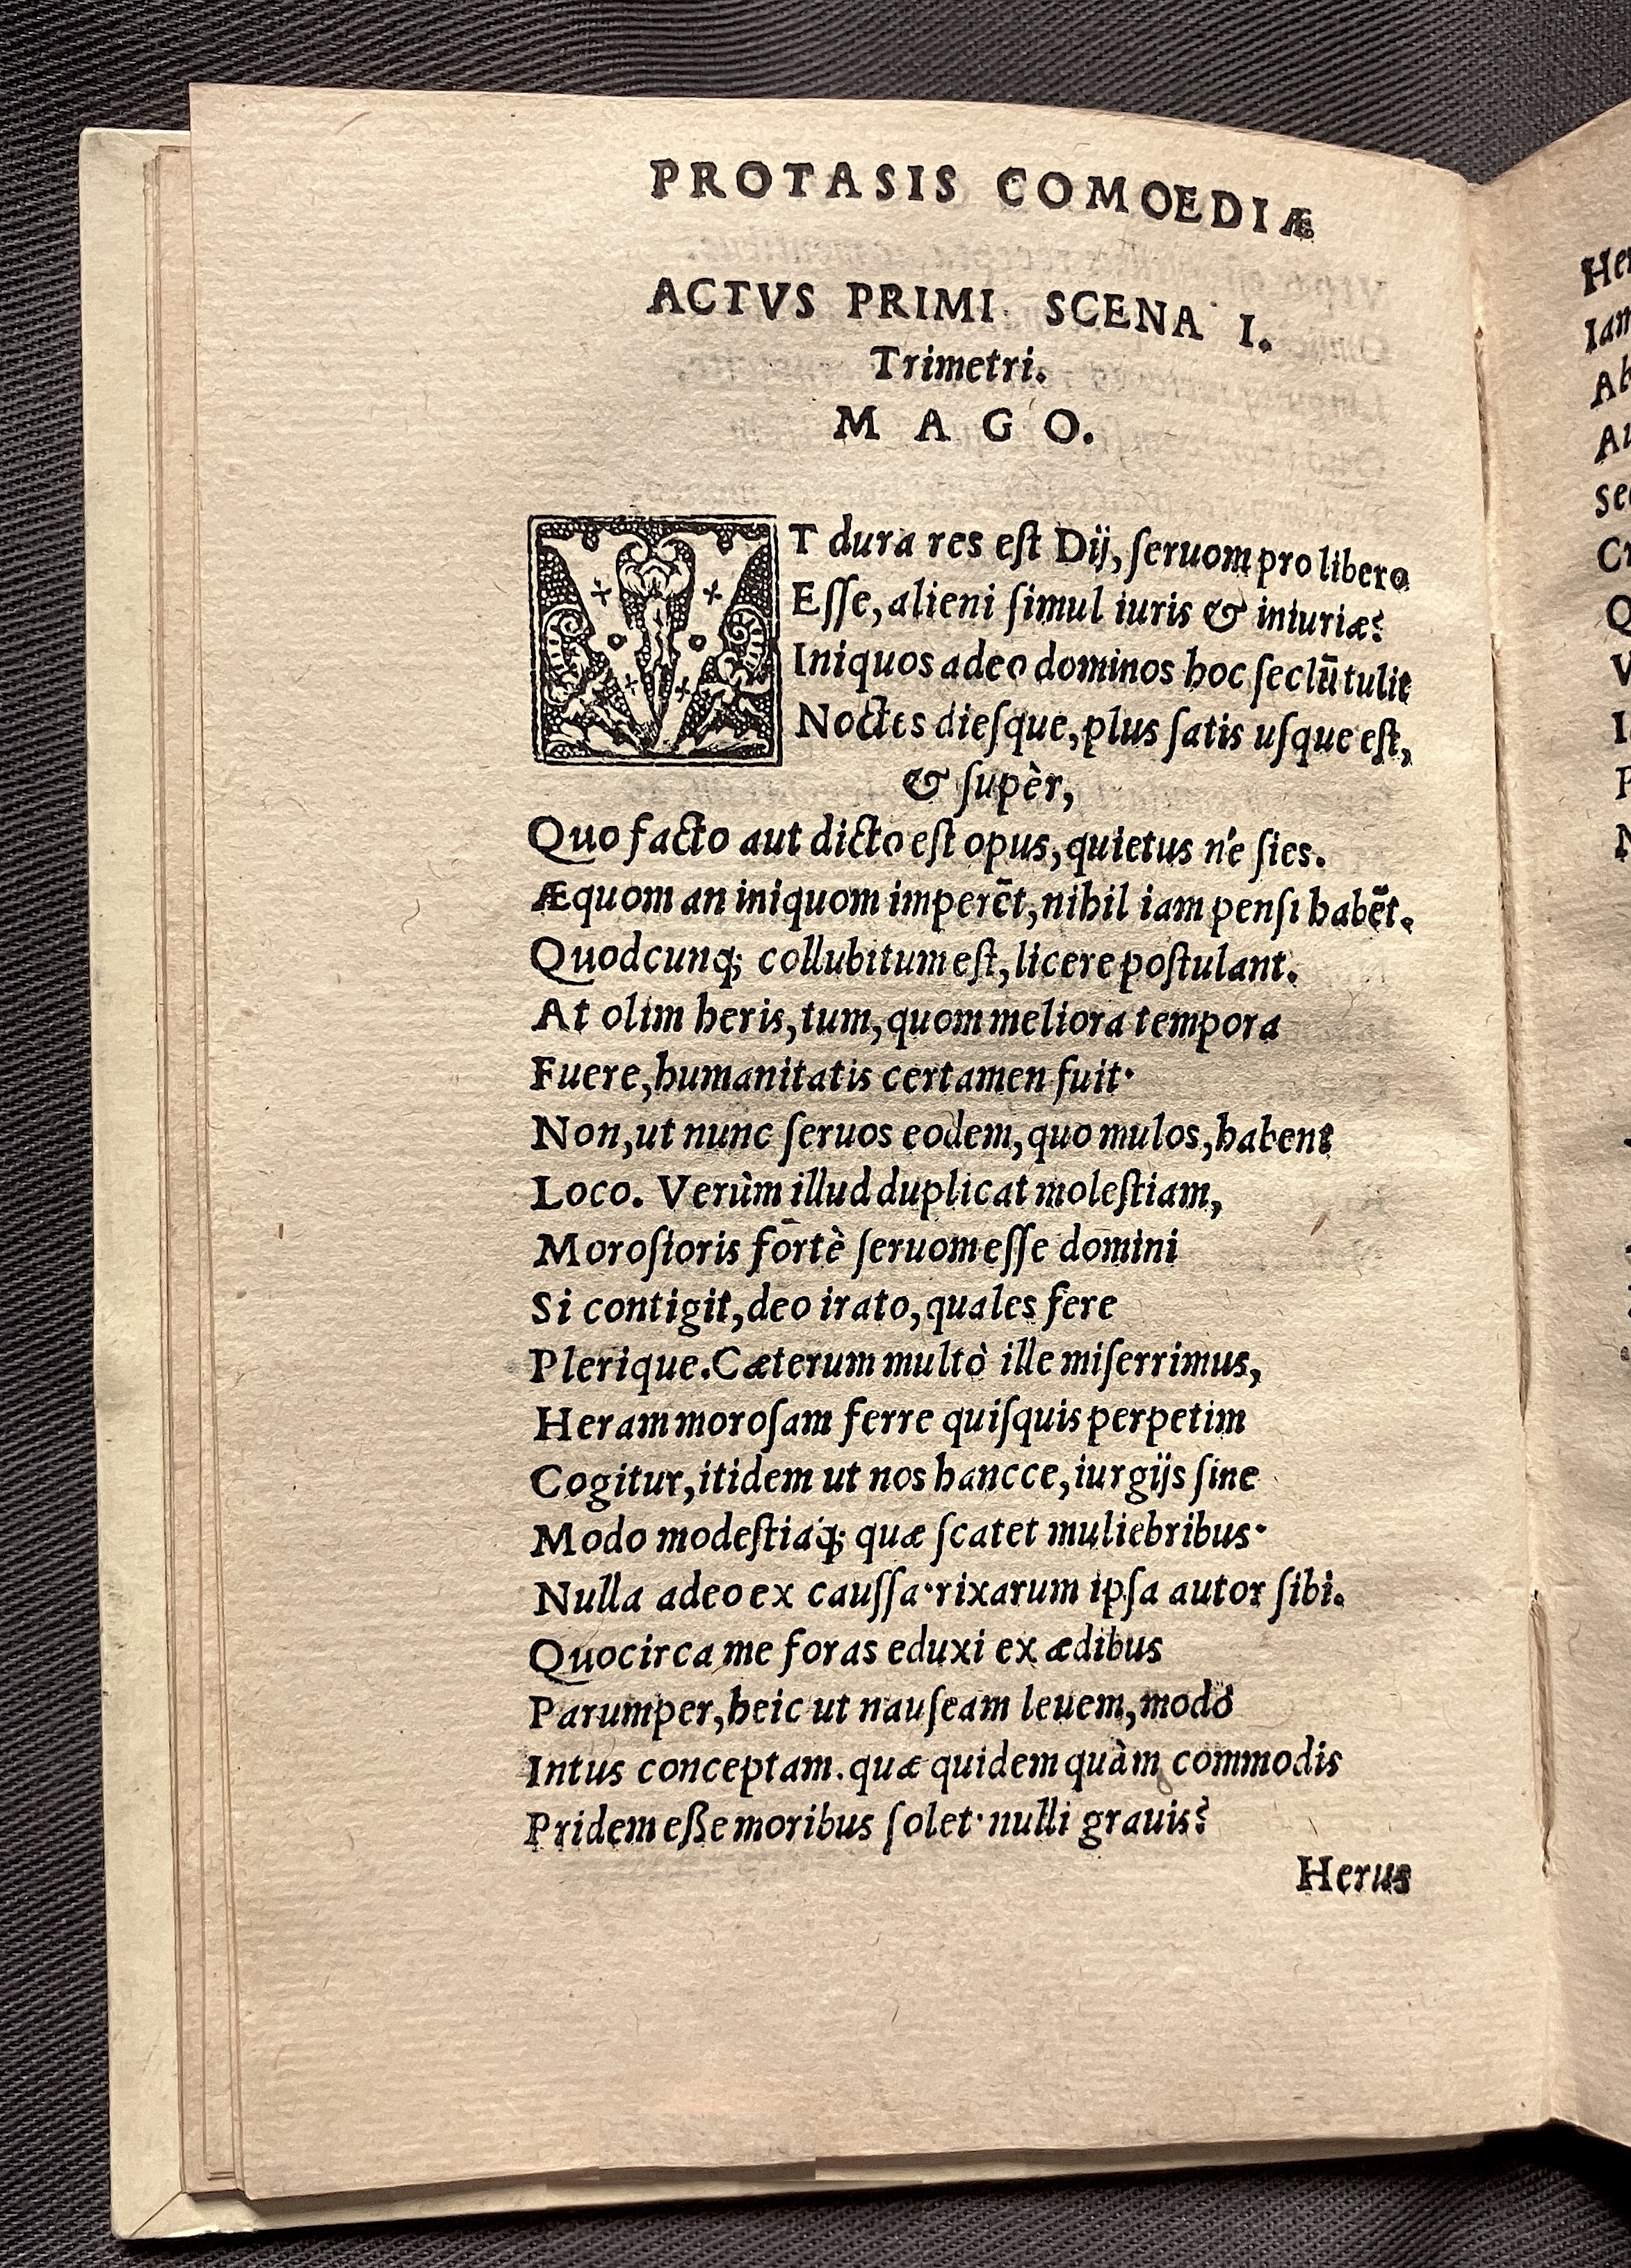 PROTASIS COMOEDIÆ
ACTVS PRIMI SCENA I.
Trimetri.
M A G O.
VT dura res eſt Dij, ſeruom pro libero
Eſſe, alieni ſimul iuris & iniuriæ?
Iniquos adeo dominos hoc ſeclū tulit
Noctes dieſque, plus ſatis uſque eſt,
& ſupèr,
Quo facto aut dicto eſt opus, quietus n'e ſies.
Æquom an iniquom imperēt, nihil iam penſi habēt.
Quodcunq; collubitum eſt, licere poſtulant.
At olim heris, tum, quom meliora tempora
Fuere, humanitatis certamen fuit·
Non, ut nunc ſeruos eodem, quo mulos, habent
Loco. Verùm illud duplicat moleſtiam,
Moroſioris fortè ſeruom eſſe domini
Si contigit, deo irato, quales fere
Plerique. Cæterum multò ille miſerrimus,
Heram moroſam ferre quiſquis perpetim
Cogitur, itidem ut nos hancce, iurgijs ſine
Modo modeſtiaq́; quæ ſcatet muliebribus·
Nulla adeo ex cauſſa·rixarum ipſa autor ſibi.
Quocirca me foras eduxi ex ædibus
Parumper, heic ut nauſeam leuem, modò
Intus conceptam. quæ quidem quàm commodis
Pridem eße moribus ſolet· nulli grauis?
Herus
Her
Iam
Ab
Au